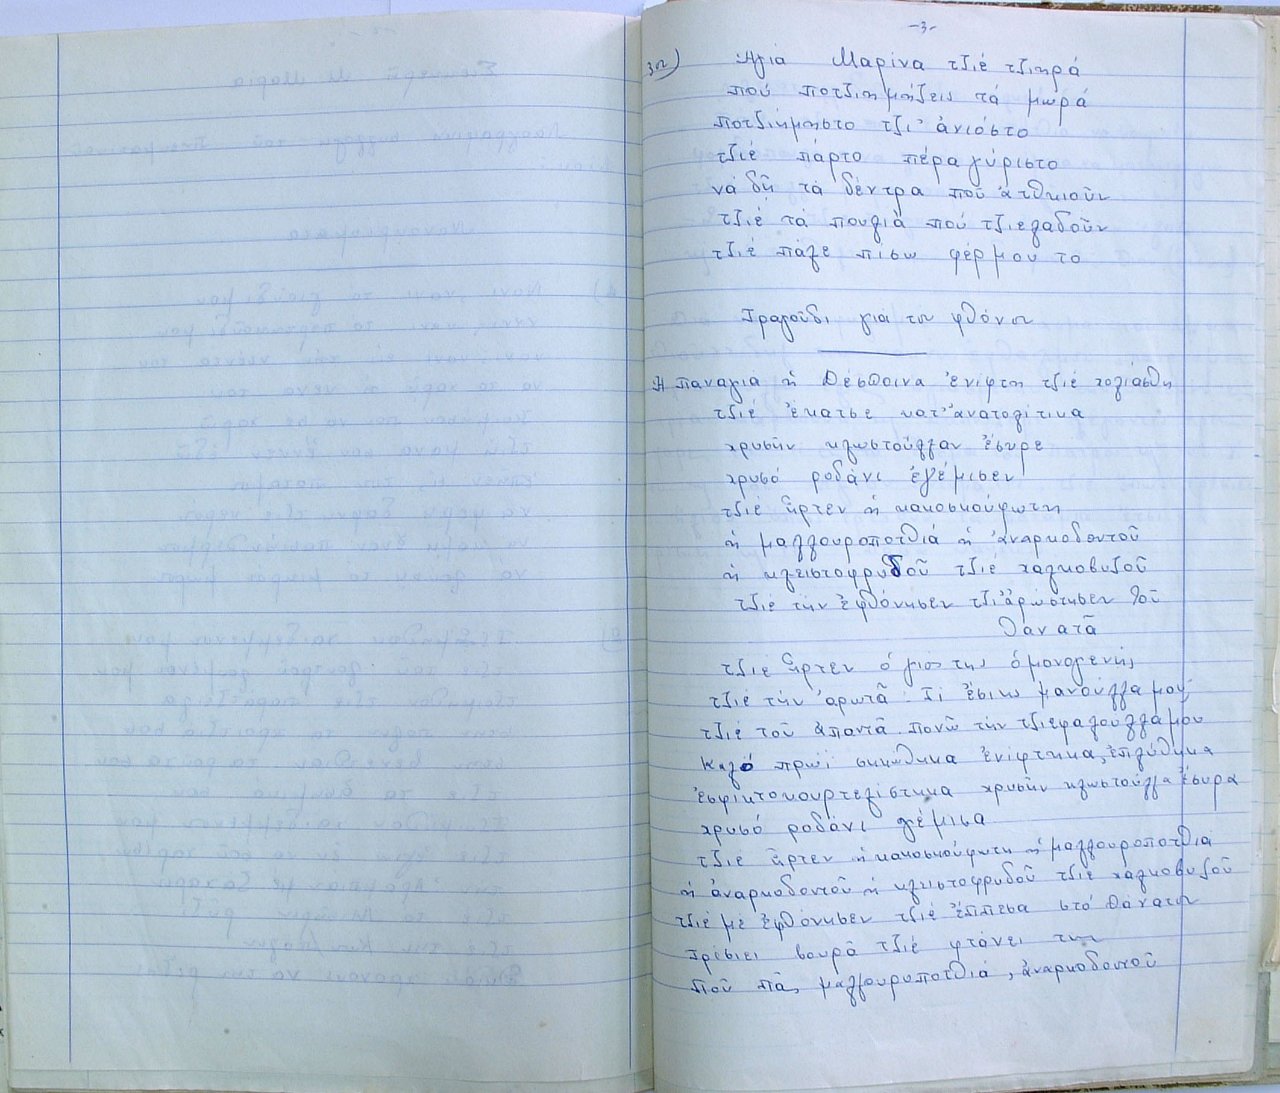 -3-
3ον) Ἁγιά Μαρίνα τζιέ τζιηρά
πού ποτζιημήζεις τά μωρά
ποτζιήμηστο τζι' ἀνιόστο
τζιέ πάρτο πέρα γύριστο
νά δῆ τά δέντρα ποῦ ἀτθκιοῦν
τζιέ τά πουλιά πού τζιελαδοῦν
τζιέ πάλε πίσω φέρ μου το
Τραγοῦδι γιά τον φθόνον
Ἡ παναγιά ἡ Δέσποινα ἐνίφτη τζιέ χολιάστη
τζιέ ἐκατσε κατ' ἀνατολίτικα
χρυσῆν κλωστοῦλλαν ἔσυρε
χρυσό ροδάνι ἐγέμισεν
τζιέ ἦρτεν ἡ κακοσκούφωτη
ἡ μαλλουροποτθιά ἡ ἀναρκοδοντοῦ
ἡ κλειστοφρυδοῦ τζιέ χαλκοβυζοῦ
τζιέ τήν ἐφθόνησεν τζι ἀρώστησεν τοῦ
θανατᾶ
τζιέ ἦρτεν ὁ γιος της ὁ μονογενής
τζιέ τήν ἀρωτᾶ: Τί ἔσιεις μανούλλα μου;
τζιέ τοῦ ἀπαντᾶ. πονῶ τήν τζιεφαλούλλα μου
Καλό πρωί σηκώθηκα ἐνίφτηκα, ἐπλύθηκα
ἐσφικτοκουρτελίστηκα χρυσῆν κλωστοῦλλα ἔσυρα
χρυσό ροδάνι γέμισα
τζιέ ἦρτεν ἡ κακοσκούφωτη ἡ μαλλουροποτθιά
ἡ ἀναρκοδοντοῦ ἡ κλειστοφρυδοῦ τζιέ χαλκοβυζοῦ
τζιέ μέ ἐφθόνησεν τζιέ ἔππεσα στό θάνατον
Τρέσιει βουρᾶ τζιέ φτάνει την
ποῦ πᾶς μαλλουροποτθιά, ἀναρκοδοντοῦ